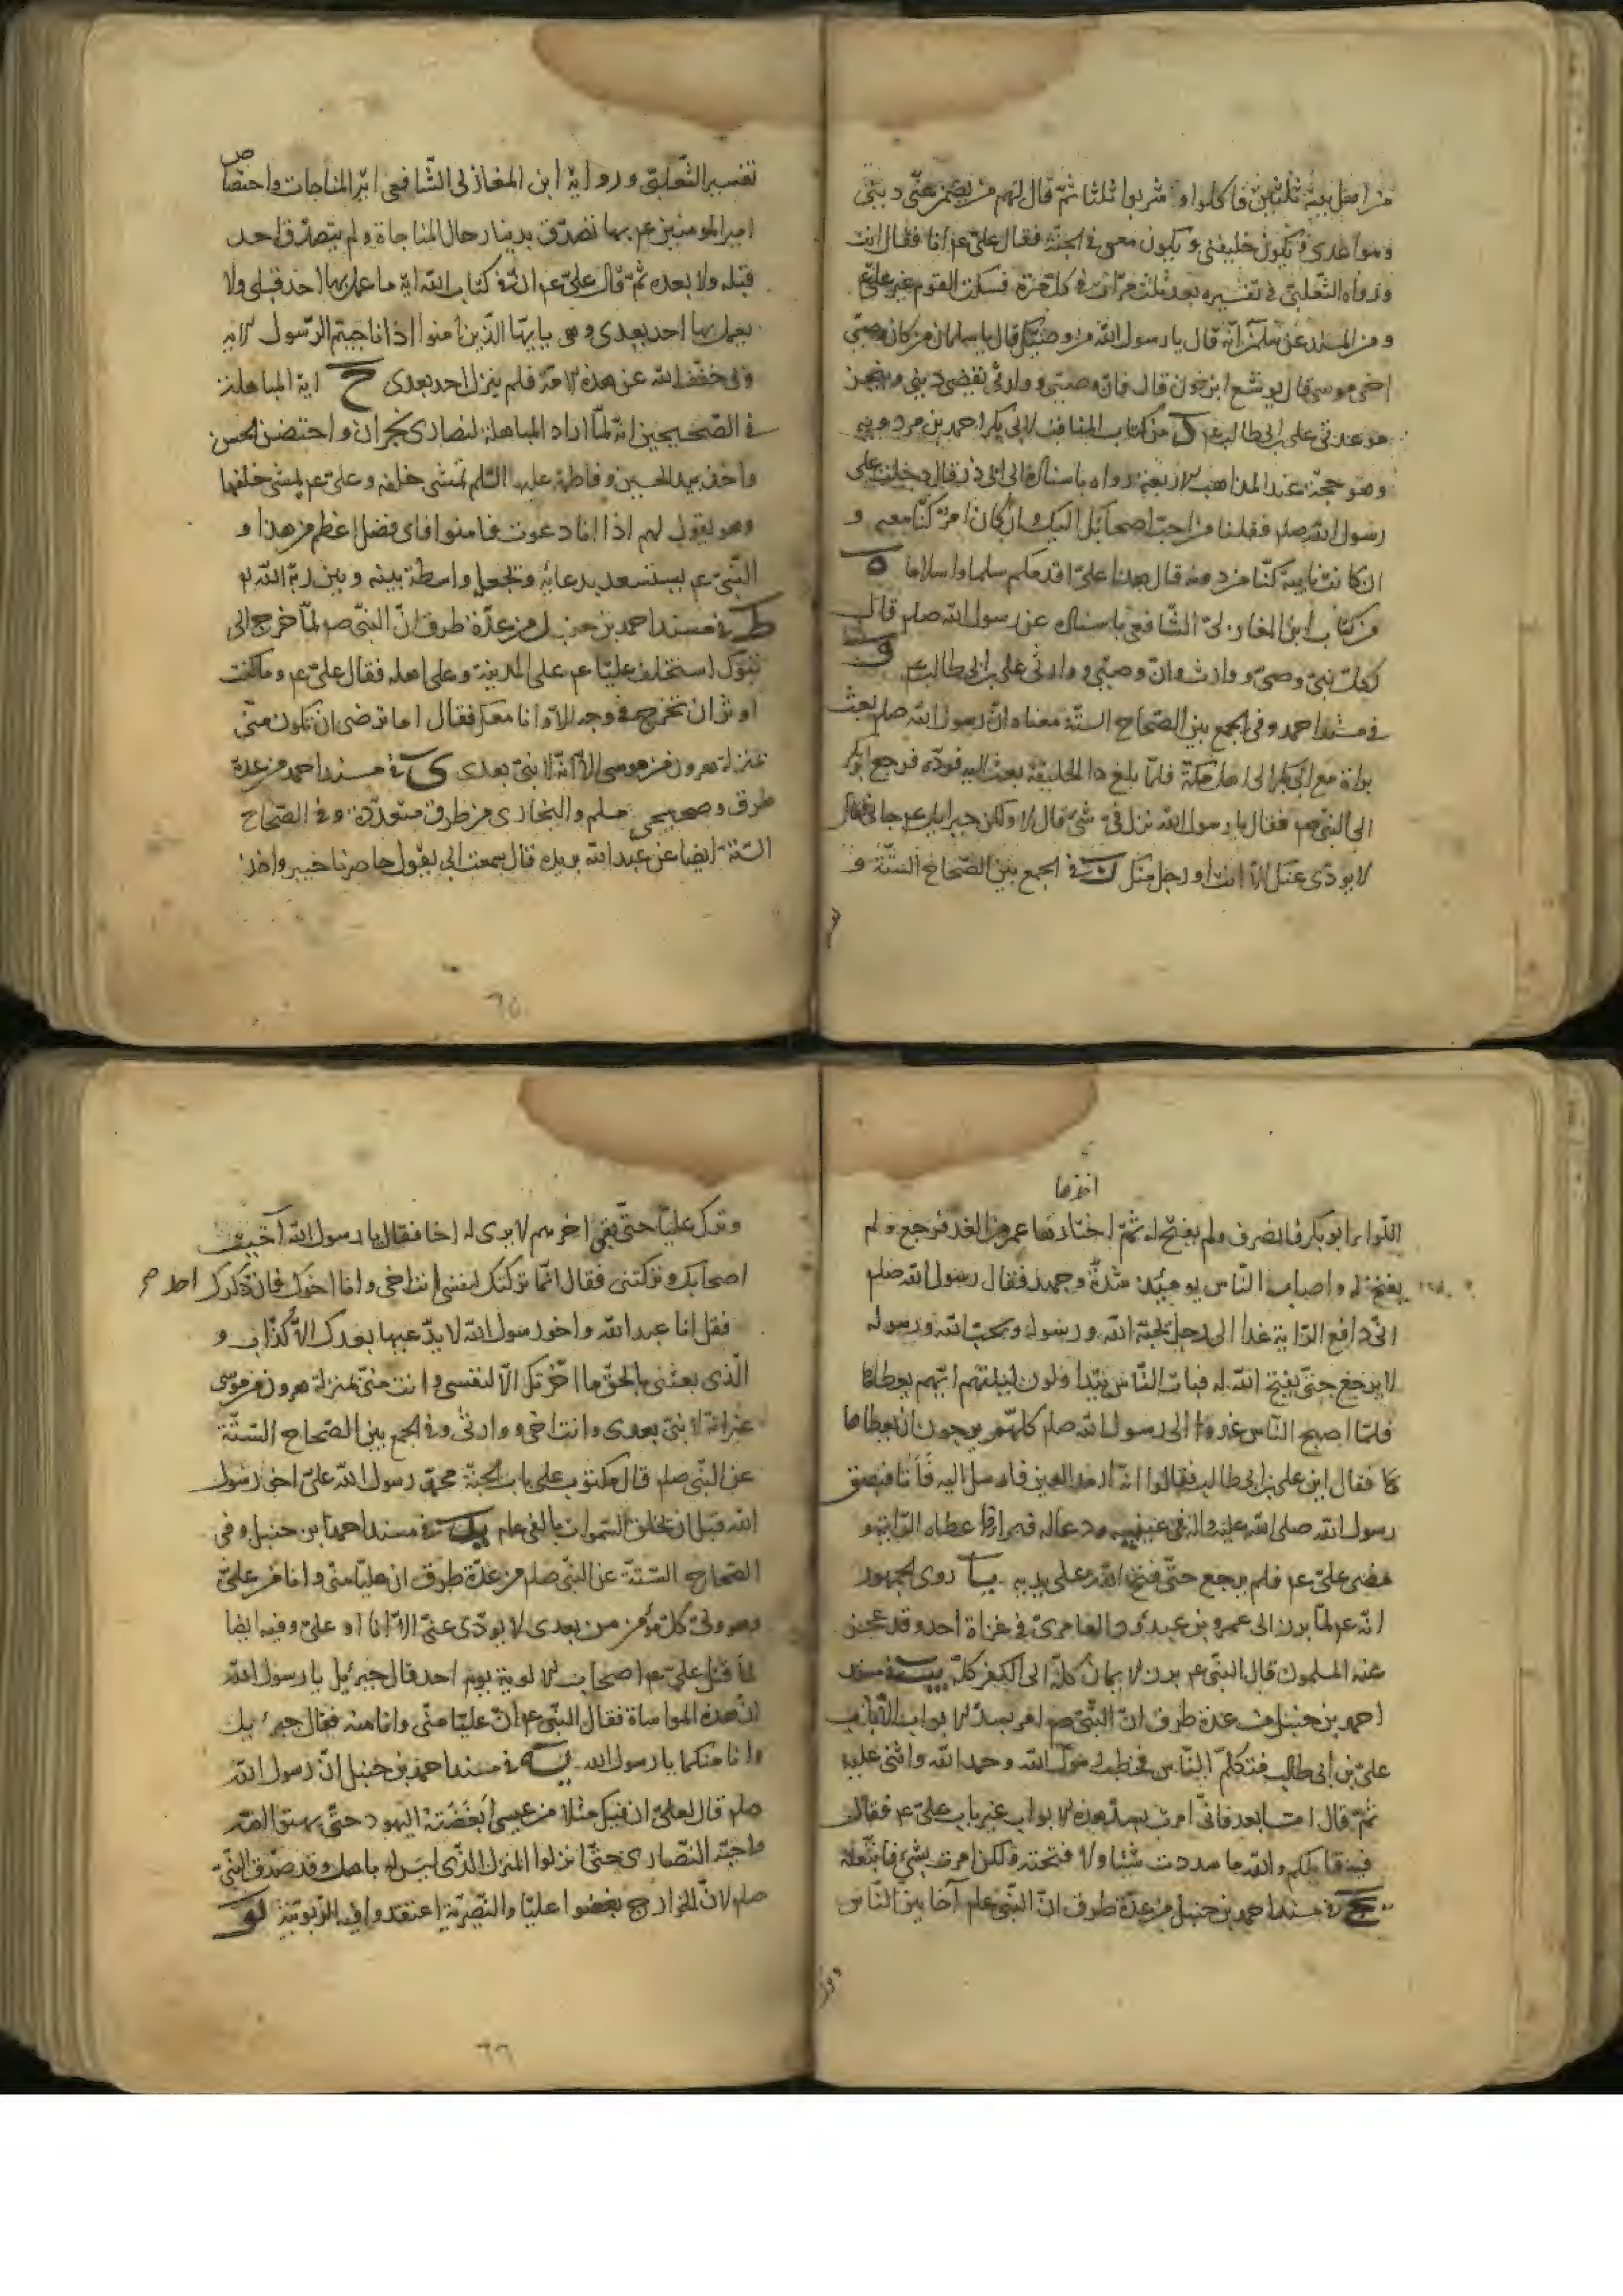 من اهل بيته ثلثين فاكلوا و شربوا ثلثا ثم قال لهم من يضمن عنى دينى
ومواعدى فيكون خليفتى و يكون معى فى الجنة فقال على عم انا فقال انت
ورواه الثعلبى فى تفسيره بعد ثلث مرات فى كل مرة فسكت القوم غير على عم
و من المسند عن سلمان انه قال يا رسول الله من وصيك قال يا سلمان من كان وصى
اخى موسى قال يوشع ابن نون قال فان وصيى و وارثى يقضى دينى و ينجز
موعدى على بن ابى طالب عم د من كتاب المناقب لابى بكر احمد بن مردويه
وهو حجة عند المذاهب الاربعة رواه باسناده الى ابى ذر قال دخلت على
رسول الله صلم فقلنا من احب اصحابك اليك و ان كان امر كنا معه و
ان كانت نايبة كنا من دونه قال هذا على اقدمكم سلما و اسلاما ه
من كتاب ابن المغازلى الشافعى باسناده عن رسول الله صلم قال
لكل نبى وصى و وارث و ان وصيى و وارثى على بن ابى طالب عم و
فى مسند احمد و فى الجمع بين الصحاح الستة معناه ان رسول الله صلم بعث
براة مع ابى بكر الى اهل مكة فلما بلغ ذا الحليفة بعث اليه فرده فرجع ابو بكر
الى النبى صم فقال يا رسول الله نزل فى شئ قال لا ولكن جبرايل عم جانى فقال
لا يودى عنك الا انت او رجل منك ز فى الجمع بين الصحاح الستة و
تفسير الثعلبى و رواية ابن المغازلى الشافعى اية المناجات و اختصاص
امير المومنين عم بها تصدق بدينار حال المناجاة و لم يتصدق احد
قبله ولا بعده ثم قال على عم ان فى كتاب الله اية ما عمل بها احد قبلى ولا
يعمل بها احد بعدى و هى يا يها الذين امنوا اذا ناجيتم الرسول الاية
و بى خفف الله عن هذه الامة فلم ينزل احد بعدى ح اية المباهلة
فى الصحيحين انه لما اراد المباهلة لنصارى نجران و احتضن الحسن
واخذ بيد الحسين و فاطمة عليها السلم تمشى خلفه و على عم يمشى خلفها
وهو يقول لهم اذا انا دعوت فامنوا فاى فضل اعظم من هذا و
النبى عم يستسعد بدعائه و يجعل واسطة بينه و بين ربه الله
ط فى مسند احمد بن حنبل من عدة طرق ان النبى صم لما خرج الى
تبوك استخلف عليا عم على المدينة و على اهله فقال على عم و ما كنت
اوثر ان تخرج فى وجه الا و انا معك فقال اما ترضى ان تكون منى
بمنزلة هرون من موسى الا انه لا نبى بعدى ى فى مسند احمد من عدة
طرق و صحيحى مسلم و البخارى من طرق متعددة و فى الصحاح
الستة ايضا عن عبد الله بريده قال سمعت ابى يقول حاصرنا خيبر و اخذ
اخذها
اللواء ابو بكر فانصرف و لم يفتح له ثم اختارها عمر من الغد فرجع و لم
يفتح له و اصاب الناس يومئذ شدة و جهد فقال رسول الله صلم
انى دافع الراية غدا الى رجل يحبه الله و رسوله و يحب الله و رسوله
لا يرجع حتى يفتح الله له فبات الناس يتداولون ليلتهم ايهم يعطاها
فلما اصبح الناس غدوا الى رسول الله صلم كلهم يرجون ان يعطاها
فقال اين على بن ابى طالب فقالوا انه ارمد العين فارسل اليه فأتا فبصق
رسول الله صلى الله عليه و اله فى عينيه و دعا له فبرا فاعطاه الراية و
مضى على عم فلم يرجع حتى فتح الله على يديه يا روى الجمهور
انه عم لما برز الى عمرو بن عبد ود العامرى فى غزاة احد و قد عجز
عنه المسلمون قال النبى عم برز الايمان كله الى الكفر كله يب فى مسند
احمد بن حنبل من عدة طرق ان النبى صم امر بسد الابواب الا باب
على بن ابى طالب فتكلم الناس فخطب رسول الله و حمد الله و اثنى عليه
ثم قال اما بعد فانى امرت بسد هذه الابواب غير باب على عم فقال
فيه قايلكم و الله ما سددت شيئا و لا فتحته و لكن امرت بشئ فاتبعته
يج فى مسند احمد بن حنبل من عدة طرق ان النبى صلم آخا بين الناس
و ترك عليا حتى بقى اخرهم لا يرى له اخا فقال يا رسول الله آخيت
اصحابك و تركتنى فقال انما تركتك لنفسى انت اخى و انا اخوك فان ذكرك احد
فقل انا عبد الله و اخو رسول الله لا يدعيها بعدك الا كذاب و
الذى بعثنى بالحق ما اخرتك الا لنفسى و انت منى بمنزلة هرون من موسى
غير انه لا نبى بعدى و انت اخى و وارثى و فى الجمع بين الصحاح الستة
عن النبى صلم قال مكتوب على باب الجنة محمد رسول الله على اخى رسول
الله قبل ان يخلق السموات بالفى عام يد فى مسند احمد ابن حنبل و فى
الصحاح الستة عن النبى صلم من عدة طرق ان عليا منى و انا من على
وهو ولى كل مؤمن من بعدى لا يودى عنى الا انا او على و فيه ايضا
لما قتل على عم اصحاب الالوية يوم احد قال جبرئيل يا رسول الله
ان هذه المواساة فقال النبى عم ان عليا منى و انا منه فقال جبرئيل
و انا منكما يا رسول الله يه فى مسند احمد بن حنبل ان رسول الله
صلم قال لعلى ان فيك مثلا من عيسى أبغضته اليهود حتى بهتوا امه
و احبه النصارى حتى نزلوا المنزل الذى ليس له باهل و قد صدق النبى
صلم لان الخوارج بغضوا عليا و النصيرية اعتقدوا فيه الربوبية يو